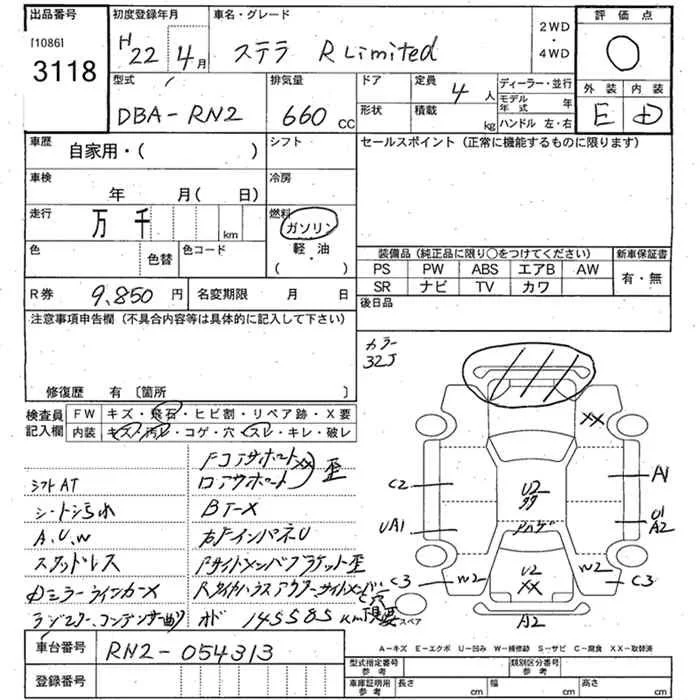 出品番号 初度登録年月 車名・グレード 2WD・4WD 評価点
[1086]
3118
H22年4月 ステラ R Limited
型式 排気量 ドア 定員 4人 ディーラー・並行 外装 内装
DBA-RN2 660cc 形状 積載 kg モデル年式 年 E D
ハンドル 左・右
車歴 自家用・( ) シフト セールスポイント(正常に機能するものに限ります)
車検 年 月( 日) 冷房
走行 万 千 km 燃料 ガソリン
軽・油
( ・ )
色 色替 色コード
装備品(純正品に限り○をつけてください) 新車保証書
PS PW ABS エアB AW 有・無
SR ナビ TV カワ
R券 9,850円 名変期限 月 日 後日品
注意事項申告欄(不具合内容等は具体的に記入して下さい)
カラー
32J
修復歴 有〔箇所 〕
検査員記入欄 FW キズ・飛石・ヒビ割・リペア跡・X要
内装 キズ・汚レ・コゲ・穴・スレ・キレ・破レ
FコアサポートXX 歪
シフトAT ロアサポート
シート汚れ BTーX
A.U.W カFインパネU
スタッドレス Fサイドメンバブラケット歪
Dミラーウィンカーx
ラジエター、コンデンサー曲り オド 145585km
XX
C2 U2 A1
UA1 U1
A2
C3 W2 U2 W2 C3
XX
スペア A2
A-キズ E-エクボ U-凹み W-補修跡 S-サビ C-腐食 XX-取替済
車台番号 RN2-054313
型式指定番号 参考 類別区分番号 参考
登録番号 車庫証明用 参考 長さ cm 幅 cm 高さ cm